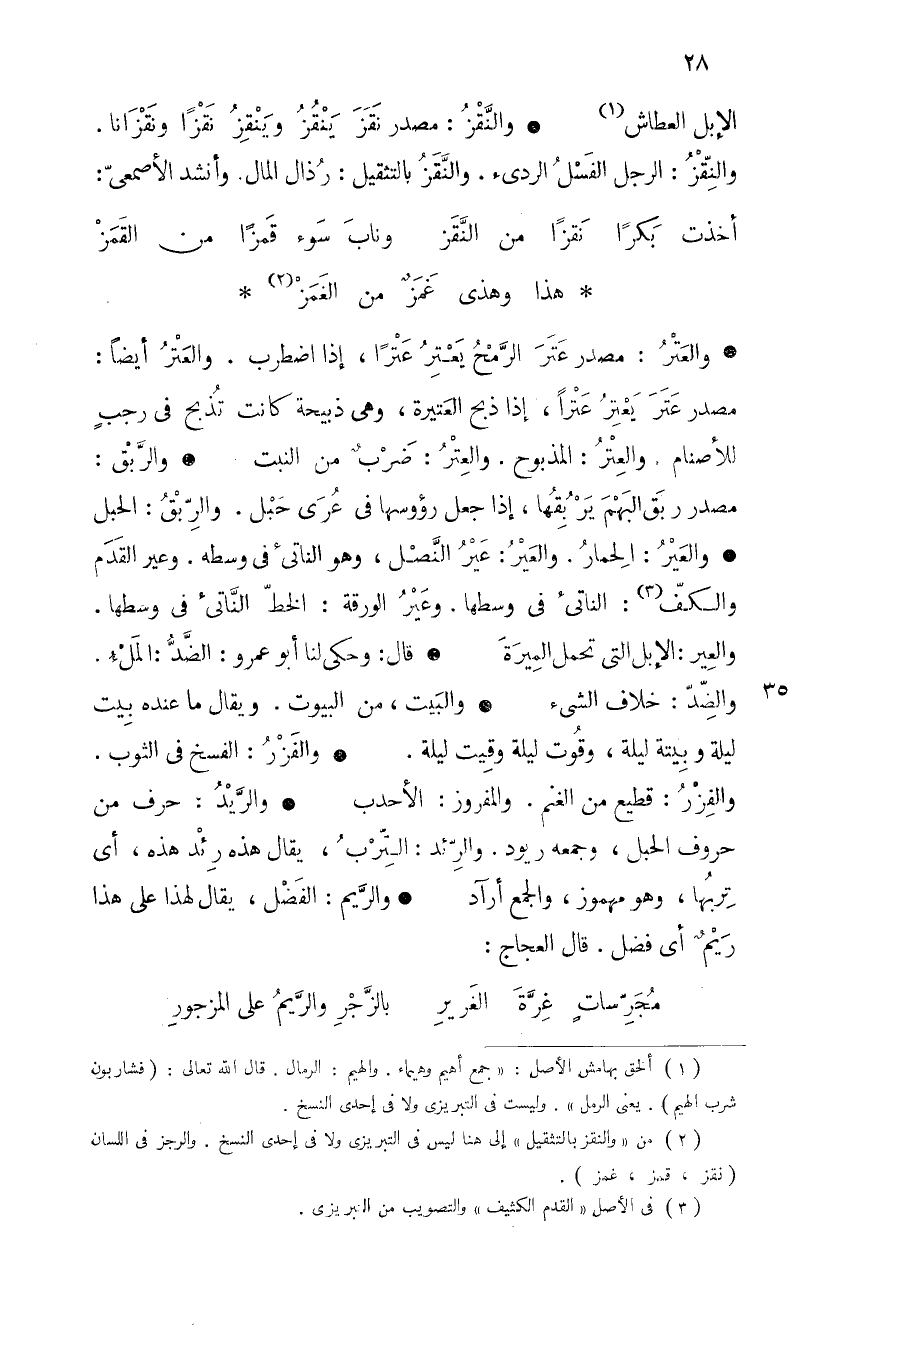 ٢٨
الإبل العطاش(١) ● والنَّقْزُ : مصدر نَقَزَ يَنْقُزُ ويَنْقِزُ نَقْزًا ونَقْزَانا .
والنِّقْزُ : الرجل الفَسْلُ الردىء . والنَّقَزُ بالتثقيل : رُذال المال. وأنشد الأصمعىّ:
أخذت بَكرًا نَقَزًا من النَّقَز ونابَ سَوء قَمَزًا من القَمَزْ
* هذا وهذى غَمَزٌ من الغَمَزْ(٢) *
● والعَتْرُ : مصدر عَتَرَ الرُّمْحُ يَعْتِرُ عَتْرًا ، إذا اضطرب . والعَتْرُ أيضاً :
مصدر عَتَرَ يَعْتِرُ عَتْراً ، إذا ذبح العَتيرة ، وهى ذبيحة كانت تُذبح فى رجبٍ
للأصنام . والعِتْرُ : المذبوح . والعِتْرُ : ضَرْبٌ من النبت ● والرَّبْق :
مصدر ربَق البَهْمَ يَرْبُقُها ، إذا جعل رؤوسها فى عُرَى حَبْل . والرِّبْقُ : الحبل
● والعَيْرُ : الحمارُ . والعَيْرُ: عَيْرُ النَّصْل ، وهو الناتئ فى وسطه . وعير القَدَم
والكفّ(٣) : الناتئ فى وسطها . وعَيْرُ الورقة : الخطّ النَّاتئ فى وسطها .
والعِير : الإبل التى تحمل المِيرَةَ ● قال: وحكى لنا أبو عمرو : الضَّدُّ : المَلْء .
والضِّدّ : خلاف الشىء ● والبَيت ، من البيوت . ويقال ما عنده بِيت ٣٥
ليلة و بِيتة ليلة ، وقُوت ليلة وقِيت ليلة . ● والفَزْرُ : الفسخ فى الثوب .
والفِزْرُ : قطيع من الغنم . والمفروز : الأحدب ● والرَّيْدُ : حرف من
حروف الجبل ، وجمعه ريود . والرِّئد : التِّرْبُ ، يقال هذه رِئْد هذه ، أى
تِربُها ، وهو مهموز ، والجمع أرآد ● والرَّيم : الفَضْل ، يقال لهذا على هذا
رَيْمٌ أى فضل . قال العجاج :
مُجَرِّسَاتٍ غِرَّةَ الغَرِيرِ بالزَّجْرِ والرَّيمُ على المزجورِ
( ١ ) ألحق بهامش الأصل : « جمع أهيم وهيماء . والهيم : الرمال . قال الله تعالى : ( فشاربون
شرب الهيم ) . يعنى الرمل » . وليست فى التبريزى ولا فى إحدى النسخ .
( ٢ ) من « والنقز بالتثقيل » إلى هنا ليس فى التبريزى ولا فى إحدى النسخ . والرجز فى اللسان
( نقز ، قمز ، غمز ) .
( ٣ ) فى الأصل « القدم الكثيف » والتصويب من التبريزى .